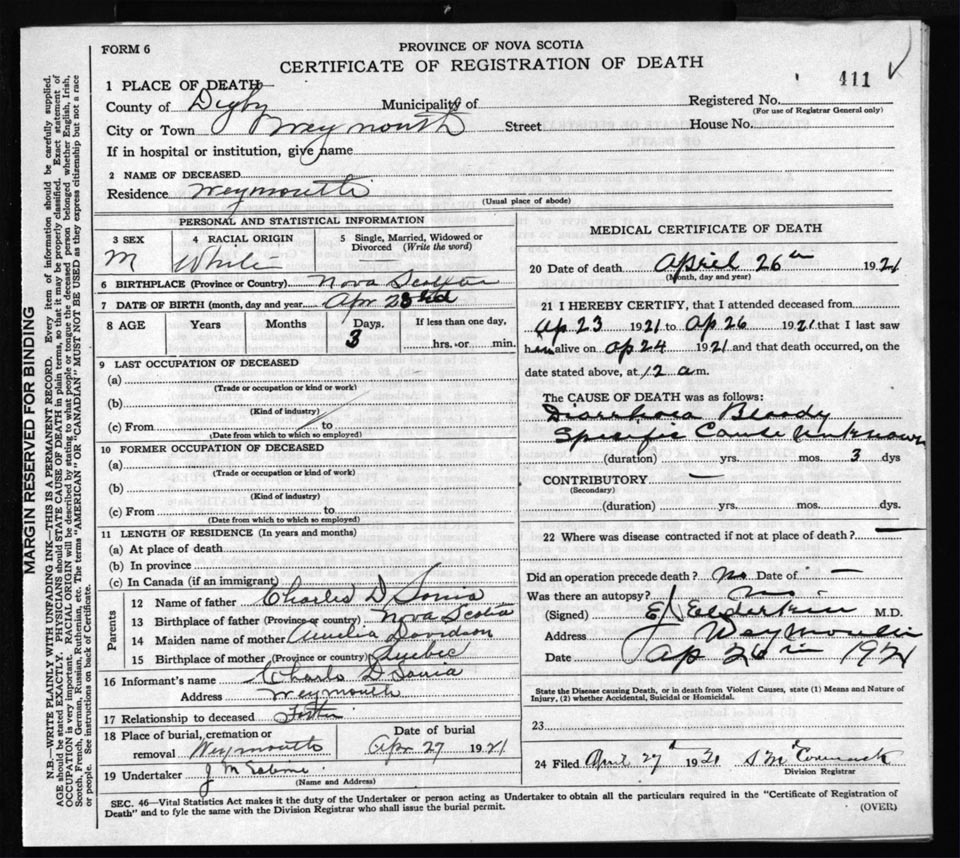 FORM 6
PROVINCE OF NOVA SCOTIA
CERTIFICATE OF REGISTRATION OF DEATH
411
1 PLACE OF DEATH
County of Digby Municipality of
Registered No.
(For use of Registrar General only)
City or Town Weymouth Street House No.
If in hospital or institution, give name
2 NAME OF DECEASED
Residence Weymouth
(Usual place of abode)
PERSONAL AND STATISTICAL INFORMATION
3 SEX 4 RACIAL ORIGIN 5 Single, Married, Widowed or Divorced (Write the word)
M White
6 BIRTHPLACE (Province or Country) Nova Scotia
7 DATE OF BIRTH (month, day and year) Apr 23rd
8 AGE Years Months Days. If less than one day,
3 hrs. or min.
9 LAST OCCUPATION OF DECEASED
(a)
(Trade or occupation or kind or work)
(b)
(Kind of industry)
(c) From to
(Date from which to which so employed)
10 FORMER OCCUPATION OF DECEASED
(a)
(Trade or occupation or kind of work)
(b)
(Kind of industry)
(c) From to
(Date from which to which so employed)
11 LENGTH OF RESIDENCE (In years and months)
(a) At place of death
(b) In province
(c) In Canada (if an immigrant)
Parents
12 Name of father Charles D
13 Birthplace of father (Province or country) Nova Scotia
14 Maiden name of mother Amelia Davidson
15 Birthplace of mother (Province or country) Quebec
16 Informant's name Charls D
Address Weymouth
17 Relationship to deceased
18 Place of burial, cremation or removal Weymouth
Date of burial Apr 27 1921
19 Undertaker J M
(Name and Address)
MEDICAL CERTIFICATE OF DEATH
20 Date of death April 26th 1921
(Month, day and year)
21 I HEREBY CERTIFY, that I attended deceased from
Ap 23 1921 to Ap 26 1921 that I last saw
him alive on Ap 24 1921 and that death occurred, on the
date stated above, at 12 a.m.
The CAUSE OF DEATH was as follows:
Diarrhoea Bloody
Specific Cause Unknown
(duration) yrs. mos. 3 dys
CONTRIBUTORY —
(Secondary)
(duration) yrs. mos. dys.
22 Where was disease contracted if not at place of death? —
Did an operation precede death? No Date of —
Was there an autopsy? No
(Signed) E Elderkin M.D.
Address Weymouth
Date Ap 26th 1921
State the Disease causing Death, or in death from Violent Causes, state (1) Means and Nature of
Injury, (2) whether Accidental, Suicidal or Homicidal.
23
24 Filed April 27 1921 S McCormack
Division Registrar
SEC. 46—Vital Statistics Act makes it the duty of the Undertaker or person acting as Undertaker to obtain all the particulars required in the "Certificate of Registration of
Death" and to fyle the same with the Division Registrar who shall issue the burial permit.
(OVER)
MARGIN RESERVED FOR BINDING
N.B.—WRITE PLAINLY WITH UNFADING INK—THIS IS A PERMANENT RECORD. Every item of information should be carefully supplied.
AGE should be stated EXACTLY. PHYSICIANS should STATE CAUSE OF DEATH in plain terms, so that it may be properly classified. Exact statement of
OCCUPATION is very important. RACIAL ORIGIN will be described by stating to what people or tongue the deceased person belonged whether English, Irish,
Scotch, French, German, Russian, Ruthenian, etc. The terms "AMERICAN" OR "CANADIAN" MUST NOT BE USED as they express citizenship but not a race
or people. See instructions on back of Certificate.